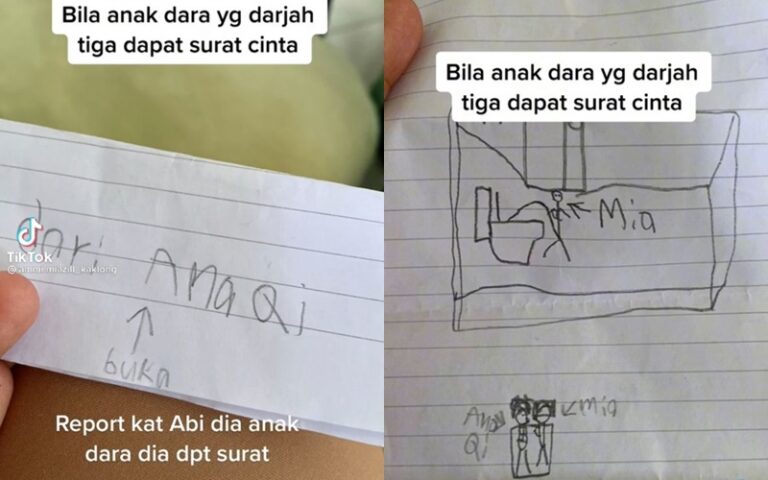 Bila anak dara yg darjah
tiga dapat surat cinta
dari AnaQi
buka
TikTok
Report kat Abi dia anak
dara dia dpt surat
Bila anak dara yg darjah
tiga dapat surat cinta
Mia
Ana
Qi
Mia